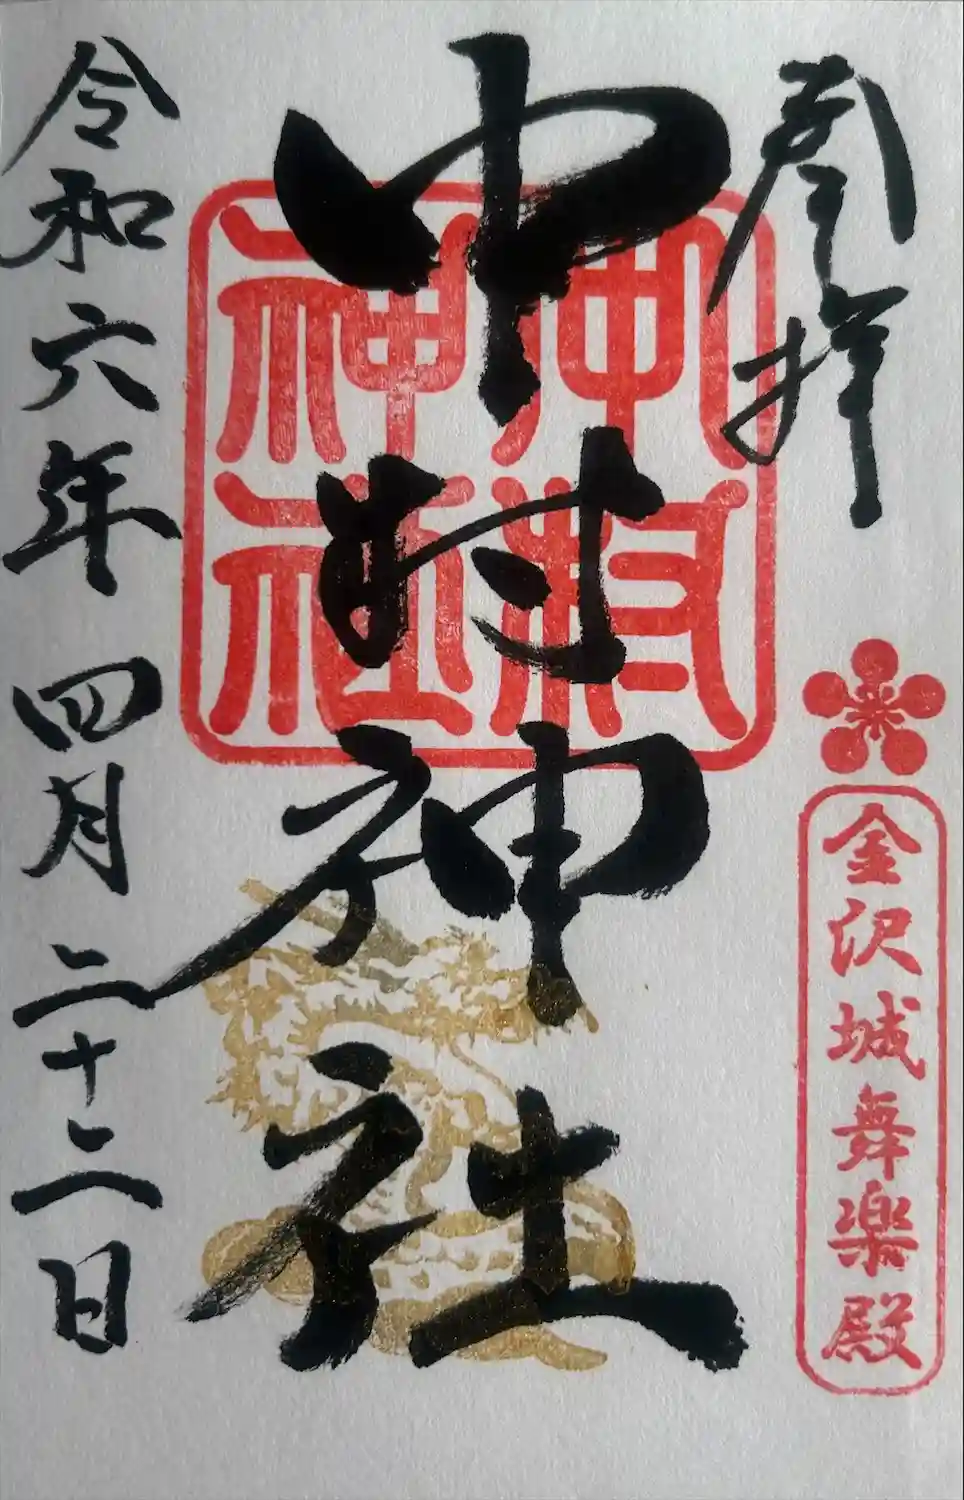 奉拝
金沢城舞楽殿
中村神社
中村神社
令和六年四月二十二日